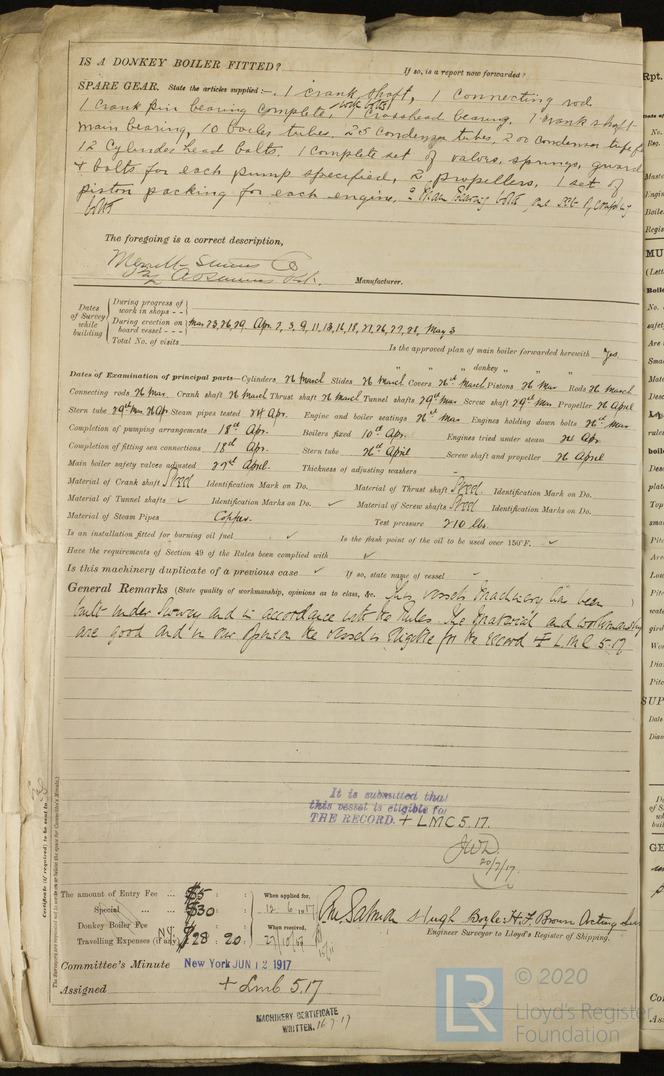 IS A DONKEY BOILER FITTED?
If so, is a report now forwarded?
SPARE GEAR. State the articles supplied:— 1 crank shaft, 1 connecting rod
1 crank pin bearing complete, with bolts, 1 crosshead bearing, 1 crank shaft
main bearing, 10 boiler tubes, 25 condenser tubes, 200 condenser tube
12 cylinder head bolts, 1 complete set of valves, springs, guard
& bolts for each pump specified, 2 propellers, 1 set of
piston packing for each engine, 2 Main Bearing bolts, one set of coupling
bolts
The foregoing is a correct description,
Merritt
Manufacturer.
Dates of Survey while building
During progress of work in shops - -
During erection on board vessel - - -
Mar 23, 26, 29 Apr 2, 3, 9, 11, 13, 16, 18, 21, 26, 27, 28, May 3
Total No. of visits
Is the approved plan of main boiler forwarded herewith Yes
" " " donkey " " "
Dates of Examination of principal parts—Cylinders 26 March Slides 26 March Covers 26th March Pistons 26 Mar Rods 26 March
Connecting rods 26 Mar. Crank shaft 26 March Thrust shaft 26 March Tunnel shafts 29th Mar Screw shaft 29th Mar Propeller 26 April
Stern tube 29th Mar, 26 Apr Steam pipes tested 24 Apr. Engine and boiler seatings 26th Mar Engines holding down bolts 26th Mar
Completion of pumping arrangements 18th Apr. Boilers fixed 10th Apr. Engines tried under steam 21 Apr.
Completion of fitting sea connections 18th Apr. Stern tube 26th April Screw shaft and propeller 26 April
Main boiler safety valves adjusted 27th April. Thickness of adjusting washers
Material of Crank shaft Steel Identification Mark on Do. Material of Thrust shaft Steel Identification Mark on Do.
Material of Tunnel shafts ✓ Identification Marks on Do. ✓ Material of Screw shafts Steel Identification Marks on Do.
Material of Steam Pipes Copper. Test pressure 210 lbs.
Is an installation fitted for burning oil fuel ✓ Is the flash point of the oil to be used over 150°F. ✓
Have the requirements of Section 49 of the Rules been complied with ✓
Is this machinery duplicate of a previous case ✓ If so, state name of vessel
General Remarks (State quality of workmanship, opinions as to class, &c. This vessels Machinery has been
built under Survey and in accordance with the Rules. The Material and workmanship
are good and in our opinion the vessel is eligible for the record + LMC 5.17
It is submitted that
this vessel is eligible for
THE RECORD. + LMC 5.17.
20/7/17
Certificate (if required) to be sent to
The amount of Entry Fee ... $5 : : When applied for,
Special ... $30 : : 12.6.1917
Donkey Boiler Fee ... : : When received,
Travelling Expenses (if any) $28 : 20 :
Hugh Boyle H. F. Brown Acting
Engineer Surveyor to Lloyd's Register of Shipping.
Committee's Minute New York JUN 12 1917
Assigned + LMC 5.17
MACHINERY CERTIFICATE
WRITTEN. 16.7.17
LR
© 2020
Lloyd's Register
Foundation